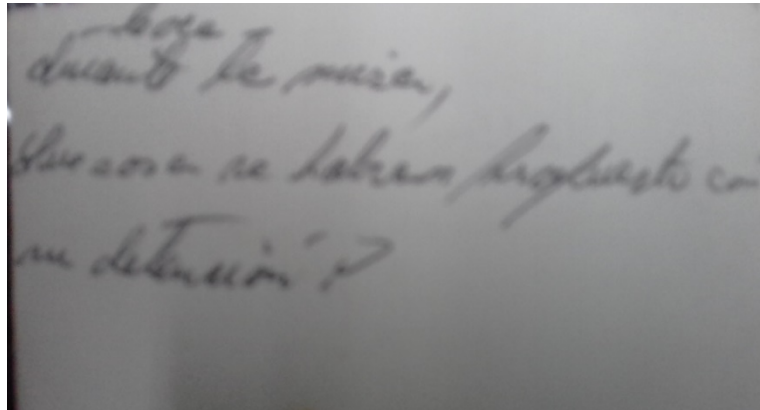 durante la misa,
Que cosa se habran propuesto con
mi detención?